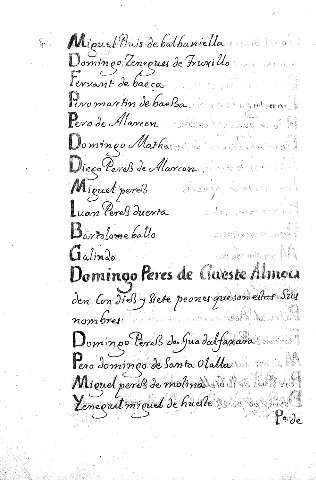 Miguel Ruis de balbaniella
Domingo Tenegues de Truxillo
Ferrant de baeça
Pero martin de baesa
Pero de Alarcon
Domingo Matha
Diego Peres de Alarcon
Miguel peres
Iuan Peres duerta
Bartolome ballo
Galindo
Domingo Peres de Gueste Almoca
den con dies y siete peones que son estros Sus
nombres
Domingo Peres de Guadalfaxara
Pero domingo de Santa Olalla
Miguel peres de molina
Yenegues miguel de hueste
Po. de